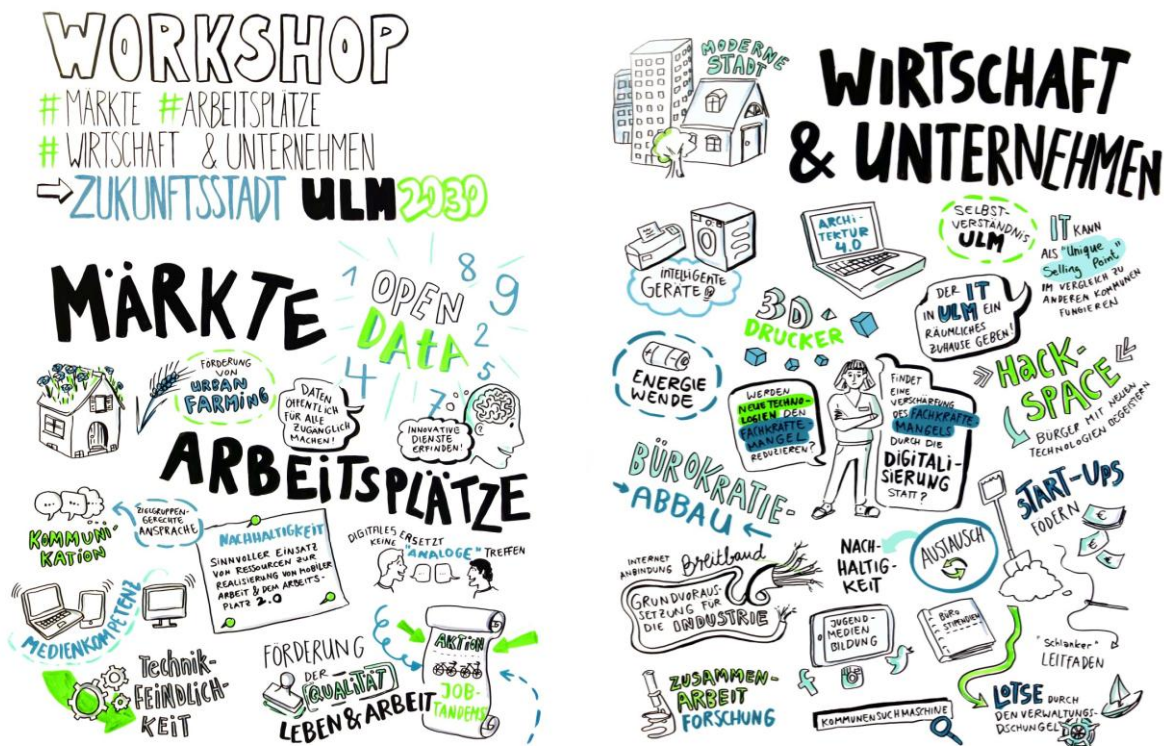 WORKSHOP
# MÄRKTE # ARBEITSPLÄTZE
# WIRTSCHAFT & UNTERNEHMEN
ZUKUNFTSSTADT ULM 2030
MÄRKTE
1 8 9 2 5 7 4
OPEN
DATA
FÖRDERUNG
VON
URBAN
FARMING
DATEN
ÖFFENTLICH
FÜR ALLE
ZUGÄNGLICH
MACHEN!
INNOVATIVE
DIENSTE
ERFINDEN!
ARBEITSPLÄTZE
KOMMUNI-
KATION
ZIELGRUPPEN-
GERECHTE
ANSPRACHE
NACHHALTIGKEIT
SINNVOLLER EINSATZ
VON RESSOURCEN ZUR
REALISIERUNG VON MOBILER
ARBEIT & DEM ARBEITS-
PLATZ 2.0
DIGITALES ERSETZT
KEINE "ANALOGE" TREFFEN
MEDIENKOMPETENZ
Technik-
FEINDLICH-
KEIT
FÖRDERUNG
DER
QUALITÄT
LEBEN & ARBEIT
AKTION
JOB-
TANDEMS
MODERNE
STADT
WIRTSCHAFT
& UNTERNEHMEN
INTELLIGENTE
GERÄTE
ARCHI-
TEKTUR
4.0
SELBST-
VERSTÄNDNIS
ULM
IT KANN
ALS "Unique
Selling Point"
IM VERGLEICH ZU
ANDEREN KOMMUNEN
FUNGIEREN
3D-
DRUCKER
DER IT
IN ULM EIN
RÄUMLICHES
ZUHAUSE GEBEN!
ENERGIE
WENDE
WERDEN
NEUE TECHNO-
LOGIEN DEN
FACHKRÄFTE-
MANGEL
REDUZIEREN?
FINDET
EINE
VERSCHÄRFUNG
DES FACHKRÄFTE-
MANGELS
DURCH DIE
DIGITALI-
SIERUNG
STATT?
HACK-
SPACE
BÜRGER MIT NEUEN
TECHNOLOGIEN BEGEISTERN
BÜROKRATIE-
ABBAU
START-UPS
FÖDERN
INTERNET
ANBINDUNG Breitband
GRUNDVORAUS-
SETZUNG FÜR
DIE INDUSTRIE
NACH-
HALTIG-
KEIT
AUSTAUSCH
JUGEND-
MEDIEN
BILDUNG
BÜRO
STIPENDIEN
"Schlanker"
LEITFADEN
ZUSAMMEN-
ARBEIT
FORSCHUNG
KOMMUNENSUCHMASCHINE
LOTSE DURCH
DEN VERWALTUNGS-
DSCHUNGEL